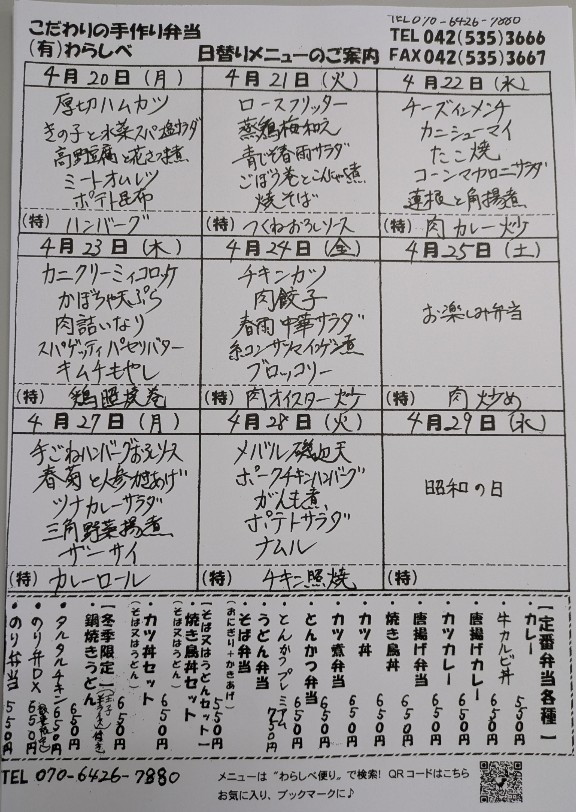 TEL 070-6426-7880
こだわりの手作り弁当
TEL 042(535)3666
(有)わらしべ
日替りメニューのご案内
FAX 042(535)3667
4月20日(月)
厚切ハムカツ
きの子と水菜スパ塩サラダ
高野豆腐と花さつま煮
ミートオムレツ
ポテト昆布
(特) ハンバーグ
4月21日(火)
ロースフリッター
蒸鶏梅和え
青じそ春雨サラダ
ごぼう巻とこんにゃく煮
焼そば
(特) つくねおろしソース
4月22日(水)
チーズインメンチ
カニシューマイ
たこ焼
コーンマカロニサラダ
蓮根と角揚煮
(特) 肉カレー炒
4月23日(木)
カニクリーミィコロッケ
かぼちゃ天ぷら
肉詰いなり
スパゲッティパセリバター
キムチもやし
(特) 鶏照焼巻
4月24日(金)
チキンカツ
肉餃子
春雨中華サラダ
糸コンサツマインゲン煮
ブロッコリー
(特) 肉オイスター炒
4月25日(土)
お楽しみ弁当
(特) 肉炒め
4月27日(月)
手ごねハンバーグおろしソース
春菊と人参かきあげ
ツナカレーサラダ
三角野菜揚煮
ザーサイ
(特) カレーロール
4月28日(火)
メバル磯辺天
ポークチキンハンバーグ
がんも煮
ポテトサラダ
ナムル
(特) チキン照焼
4月29日(水)
昭和の日
(特)
【定番弁当各種】
・カレー 550円
・牛カルビ丼
・唐揚げカレー 650円
・カツカレー 650円
・唐揚げ弁当 650円
・焼き鳥丼 650円
・カツ丼 650円
・カツ煮弁当 650円
・とんかつ弁当 650円
・とんかつプレミアム 750円
・うどん弁当
・そば弁当
(おにぎり+かきあげ) 550円
【そば又はうどんセット】
・焼き鳥丼セット
(そば又はうどん) 650円
・カツ丼セット
(そば又はうどん) 650円
【冬季限定】
・鍋焼きうどん 650円
・タルタルチキン 650円
・のり弁DX 650円
・のり弁当 550円
TEL 070-6426-7880
メニューは"わらしべ便り"で検索! QRコードはこちら
お気に入り、ブックマークに♪